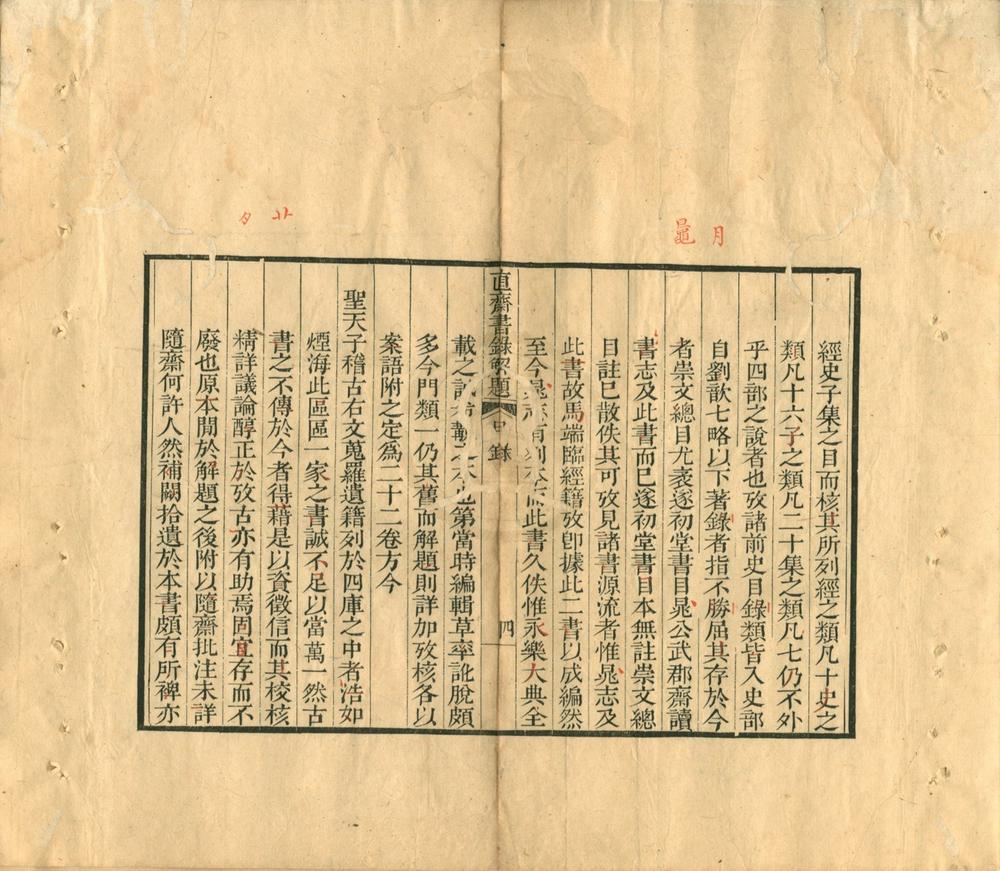 月
鼂
經史子集之目而核其所列經之類凡十史之
類凡十六子之類凡二十集之類凡七仍不外
乎四部之說者也攷諸前史目錄類皆入史部
自劉歆七略以下著錄者指不勝屈其存於今
者崇文總目尤袤遂初堂書目晁公武郡齋讀
書志及此書而已遂初堂書目本無註崇文總
目註已散佚其可攷見諸書源流者惟晁志及
此書故馬端臨經籍攷卽據此二書以成編然
至今晁此書久佚惟永樂大典全
直齋書錄解題
目錄
四
載之第當時編輯草率訛脫頗
多今門類一仍其舊而解題則詳加攷核各以
案語附之定爲二十二卷方今
聖天子稽古右文蒐羅遺籍列於四庫之中者浩如
煙海此區區一家之書誠不足以當萬一然古
書之不傳於今者得藉是以資徵信而其校核
精詳議論醇正於攷古亦有助焉固宜存而不
廢也原本間於解題之後附以隨齋批注未詳
隨齋何許人然補闕拾遺於本書頗有所裨亦